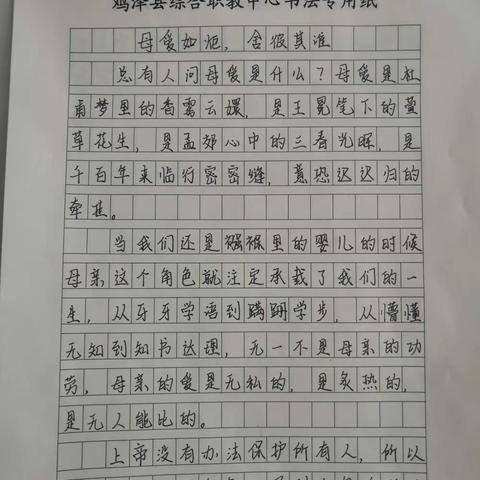 鸡泽县综合职教中心书法专用纸
母爱如炬，舍我其谁
总有人问母爱是什么？母爱是杜
甫梦里的香雾云鬟，是王冕笔下的萱
草花生，是孟郊心中的三春光晖，是
千百年来临行密密缝，意恐迟迟归的
牵挂。
当我们还是襁褓里的婴儿的时候
母亲这个角色就注定承载了我们的一
生，从牙牙学语到蹒跚学步，从懵懂
无知到知书达理，无一不是母亲的功
劳，母亲的爱是无私的，是炙热的，
是无人能比的。
上帝没有办法保护所有人，所以